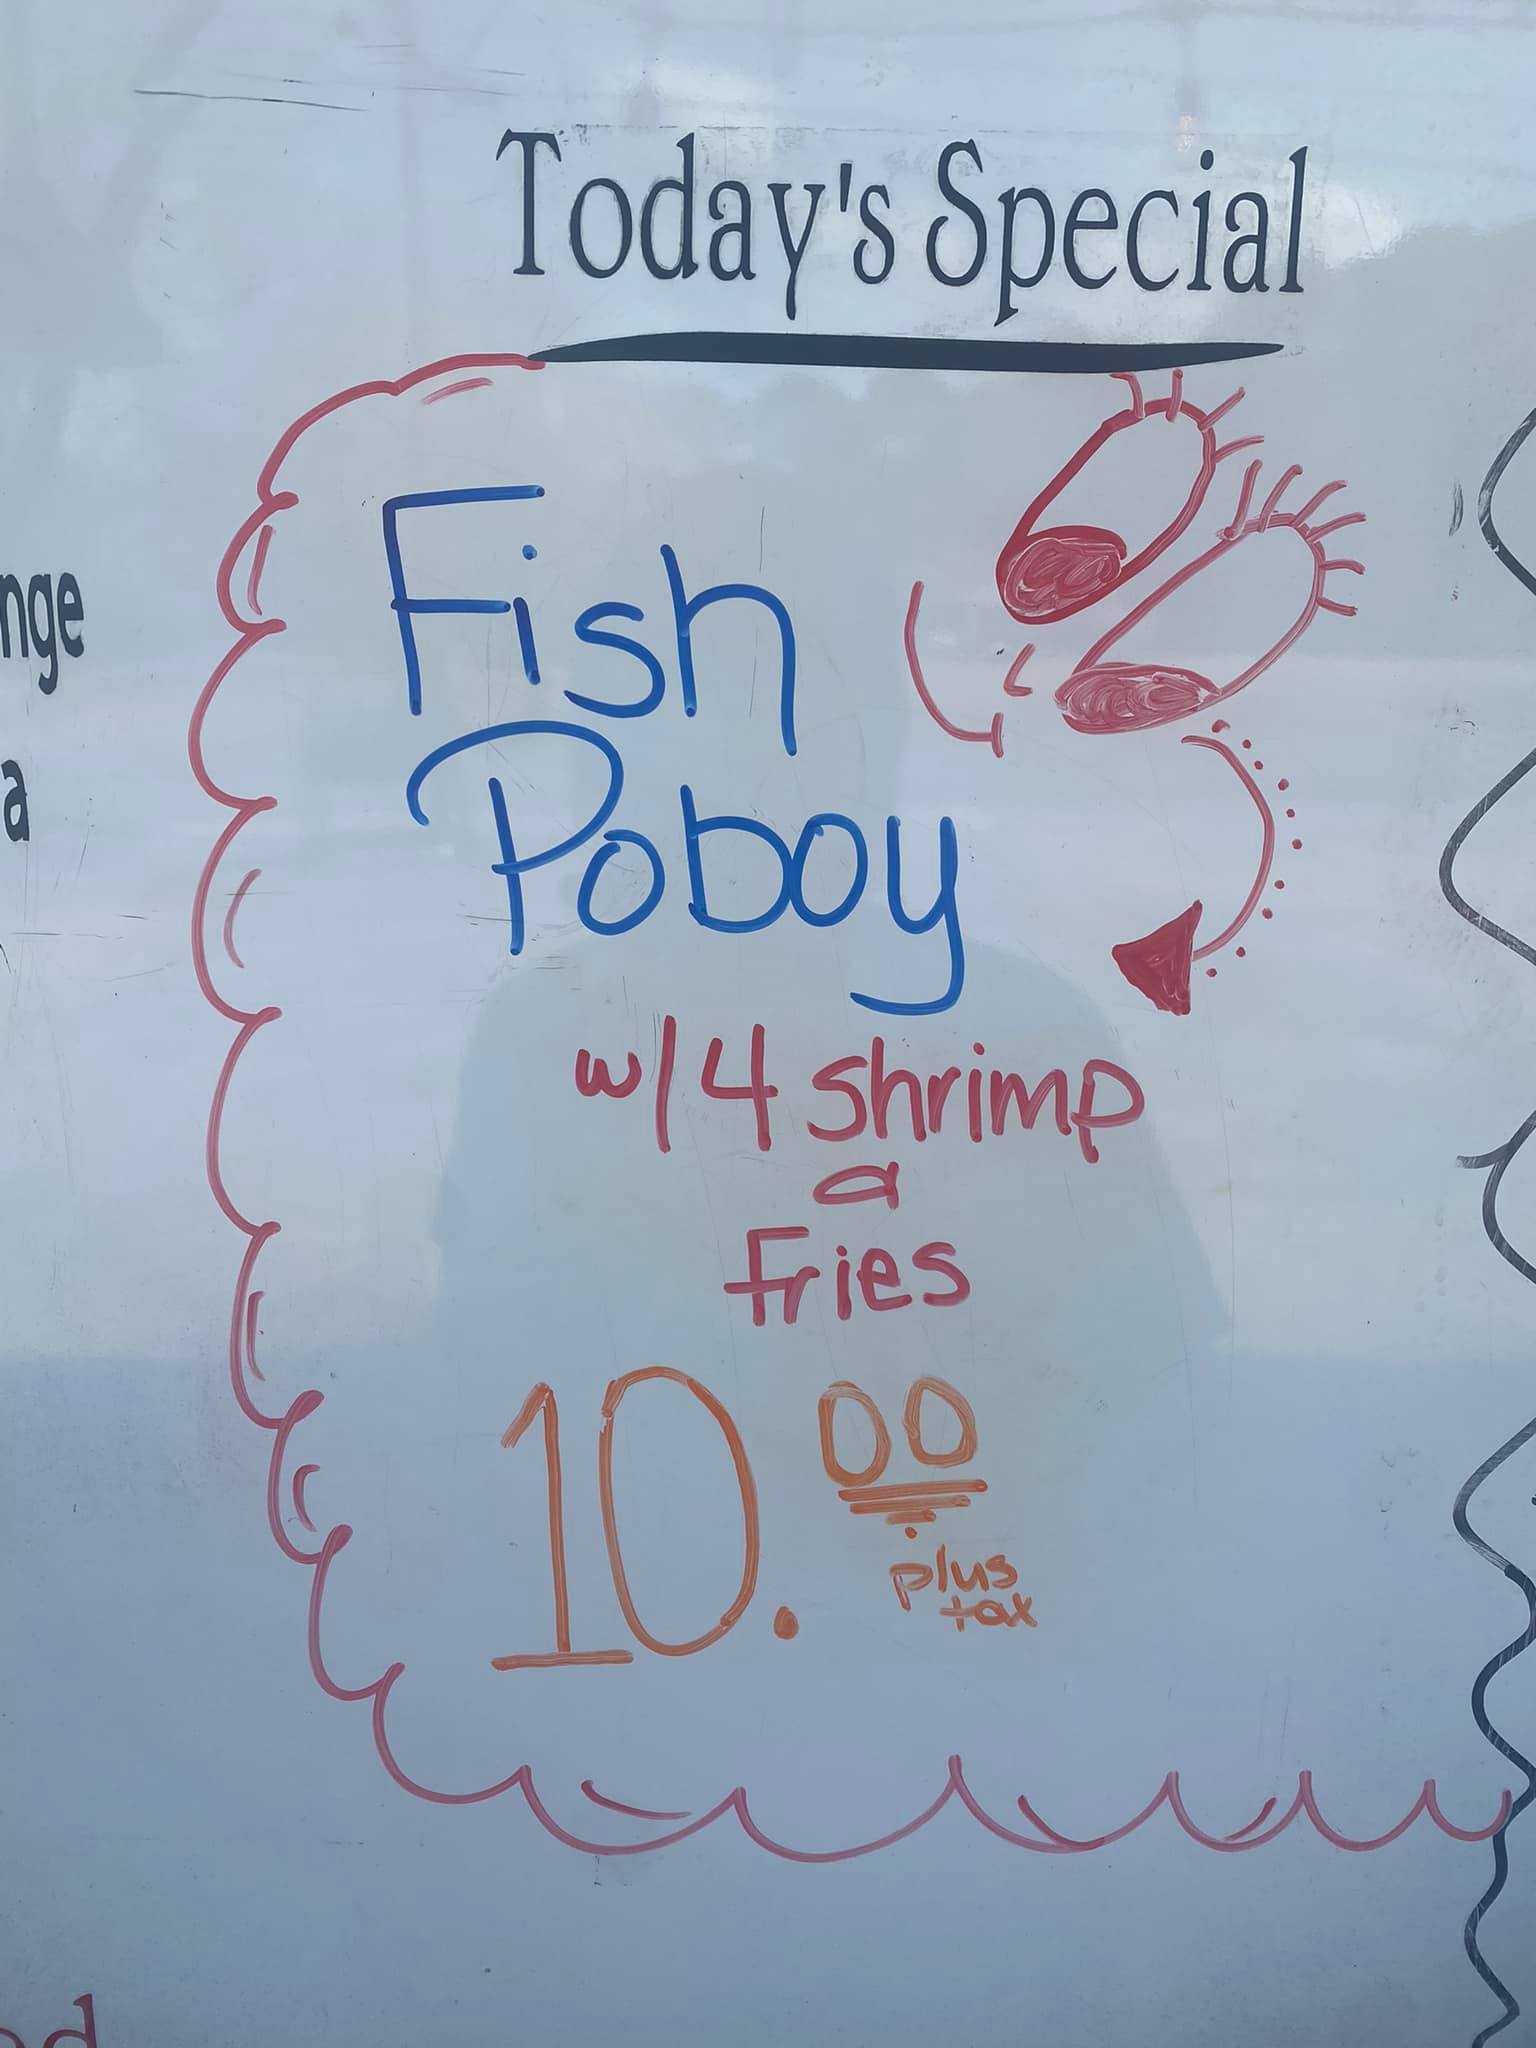 Today's Special
nge
a
Fish
Poboy
w/ 4 shrimp
a
Fries
10.00
plus
tax
ed